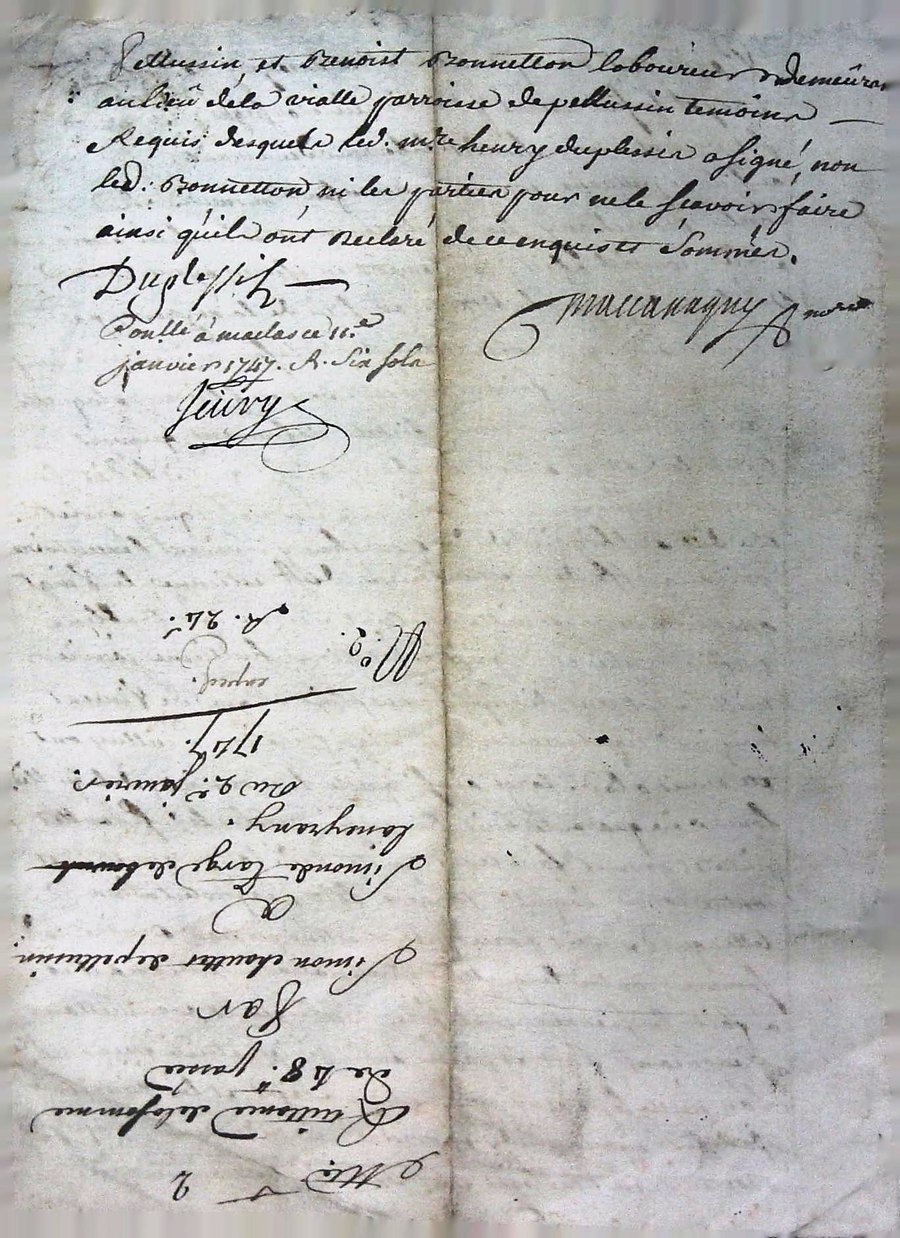 Pellussin et Benoist Bonnetton laboureur demeûrant
au lieû dela vialle parroisse depellussin temoins
Requis desquels led. mre. henry duplessis a signé, non
led. Bonnetton ni les parties pour ne le sçavoir faire
ainsi qu'ils ont declaré de ce enquis et sommés.
Duplessis
not.re
Conllé a 11.e
janvier 1747. R.
N.o 2
Quittance de la somme
de 48.tt passée
Par
Simon chauttes depellussin
a
Simonde Large
Du 2.e janvier.
1747.
exped.
N.o 2.
R. 24.s